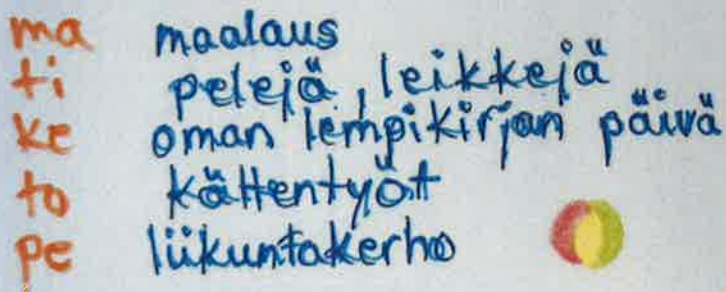 ma maalaus
ti pelejä, leikkejä
ke oman lempikirjan päivä
to kättentyöt
pe liikuntakerho